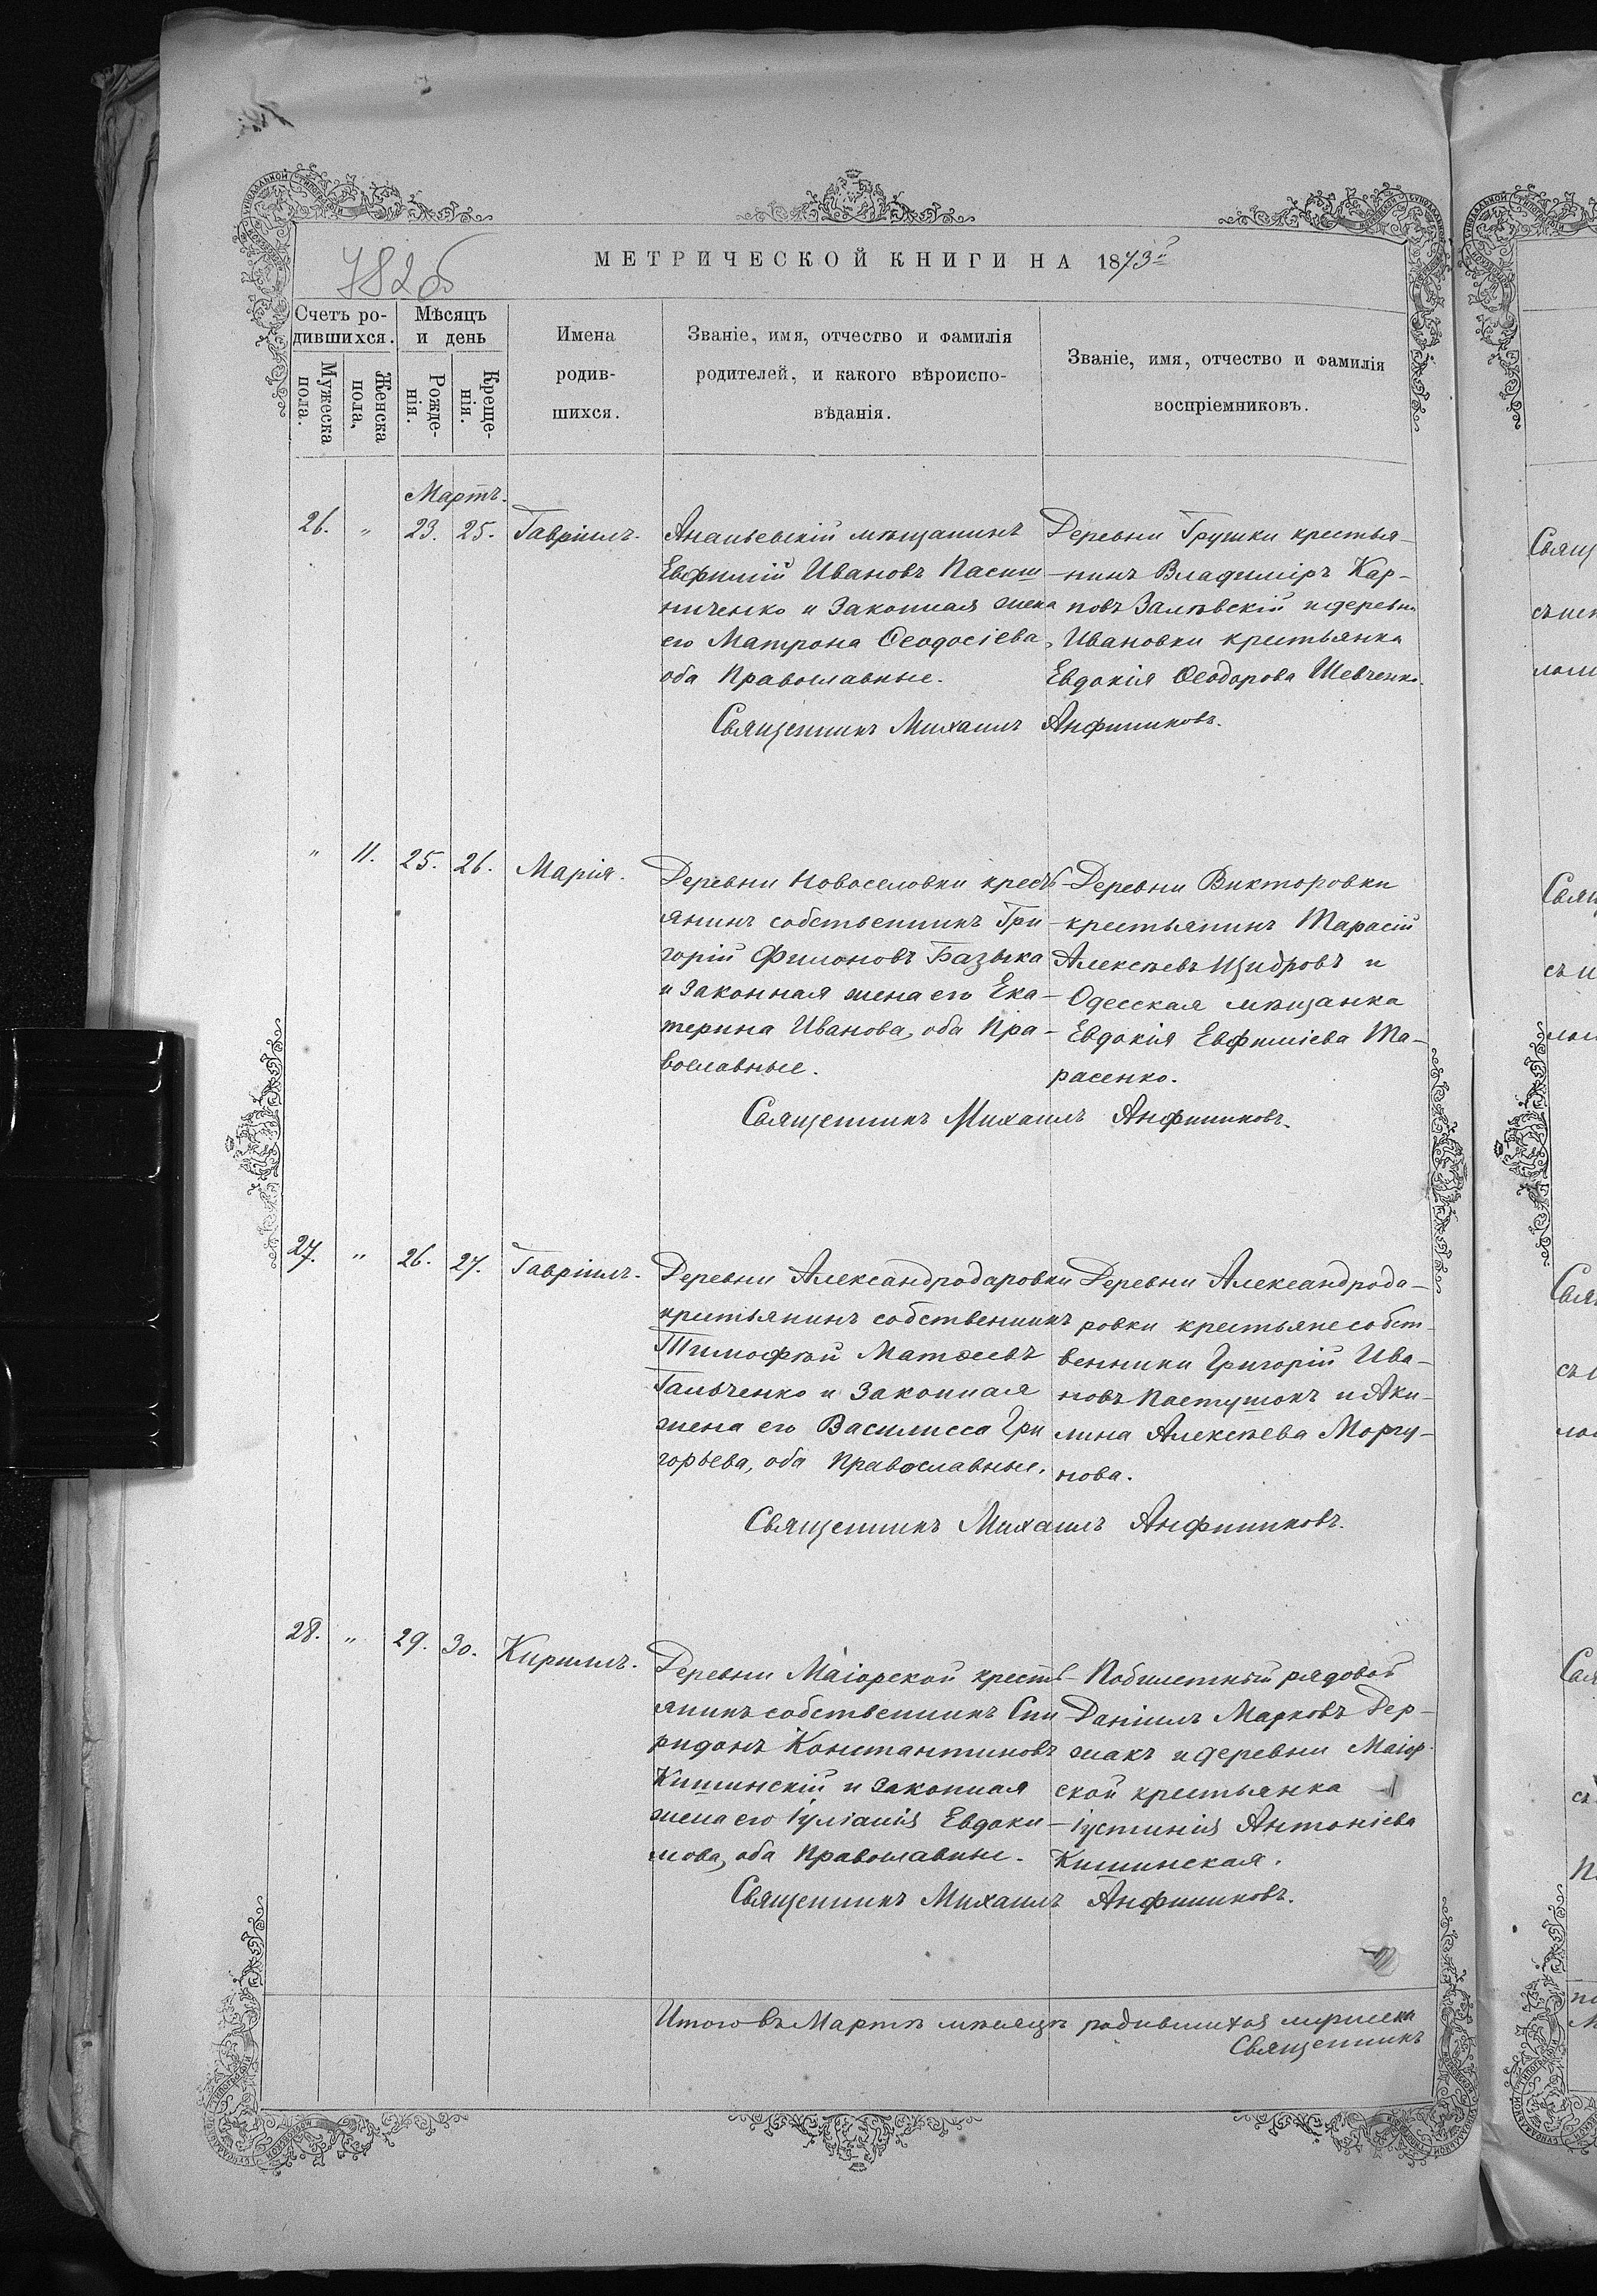 782 об
МЕТРИЧЕСКОЙ КНИГИ НА 1873 й
Счетъ ро-
дившихся.
Мужеска пола.
Женска пола,
Мѣсяцъ
и день
Рожде-
нія.
Креще-
нія.
Имена
родив-
шихся.
Званіе, имя, отчество и фамилія
родителей, и какого вѣроиспо-
вѣданія.
Званіе, имя, отчество и фамилія
воспріемниковъ.
Мартъ.
26. " 23. 25. Гавріилъ.
Ананьевскій мѣщанинъ
Евфимій Ивановъ Пасиш
ниченко и законная жена
его Матрона Ѳеодосіева,
оба Православные.
Деревни Грушки крестья-
нинъ Владиміръ Кар-
повъ Залѣвскій и деревни
Ивановки крестьянка
Евдокія Ѳеодорова Шевченко.
Священникъ Михаилъ Анфиниковъ.
" 11. 25. 26. Марія.
Деревни Новоселовки кресть-
янинъ собственникъ Гри-
горій Филоновъ Базыка
и законная жена его Ека-
терина Иванова, оба Пра-
вославные.
Деревни Викторовки
крестьянинъ Тарасій
Алексѣевъ Щидровъ и
Одесская мѣщанка
Евдокія Евфиміева Та-
расенко.
Священникъ Михаилъ Анфиниковъ.
27. " 26. 27. Гавріилъ.
Деревни Александродаровки
крестьянинъ собственникъ
Тимофѣй Матѳеевъ
Гальченко и законная
жена его Василисса Гри
горьева, оба Православные.
Деревни Александрода-
ровки крестьяне собст-
венники Григорій Ива-
новъ Пастушокъ и Аки-
лина Алексѣева Моргу-
нова.
Священникъ Михаилъ Анфиниковъ.
28. " 29. 30. Кириллъ.
Деревни Маіорской кресть-
янинъ собственникъ Спи
ридонъ Константиновъ
Кишинскій и законная
жена его Іуліанія Евдоки-
мова, оба Православные.
Побилетный рядовой
Даніилъ Марковъ Дер-
жакъ и деревни Маіор-
ской крестьянка
Іустинія Антоніева
Кишинская.
Священникъ Михаилъ Анфиниковъ.
Итого въ Мартѣ мѣсяцѣ родившихся мужеска
Священникъ